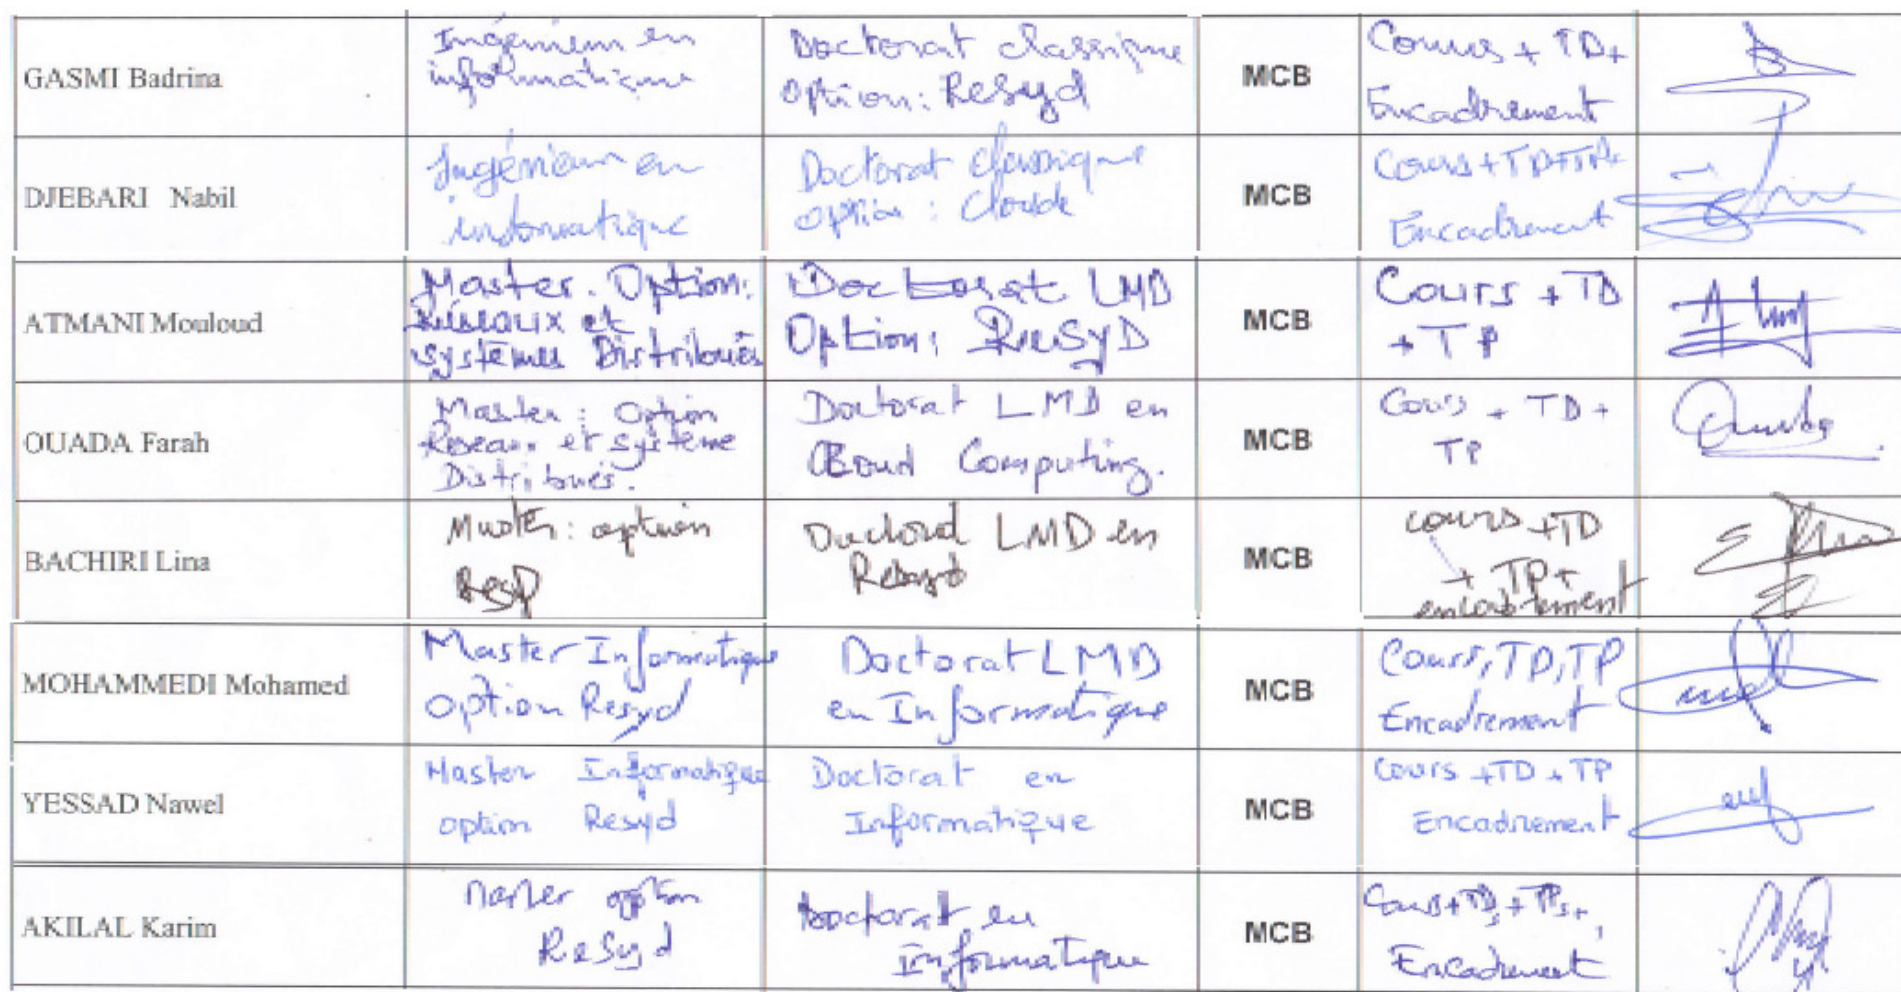 GASMI Badrina
Ingénieur en
informatique
Doctorat classique
option: Resyd
MCB
Cours + TD+
Encadrement
DJEBARI Nabil
Ingénieur en
informatique
Doctorat classique
option : Cloude
MCB
Cours+TD+TP+
Encadrement
ATMANI Mouloud
Master. Option:
Réseaux et
systèmes Distribués
Doctorat LMD
Option: ReSyD
MCB
Cours + TD
+ TP
OUADA Farah
Master : option
Reseaux et système
Distribués.
Doctorat LMD en
Cloud Computing.
MCB
Cours + TD +
TP
BACHIRI Lina
Master : option
ResyD
Doctorat LMD en
Resyd
MCB
cours +TD
+ TP+
encadrement
MOHAMMEDI Mohamed
Master Informatique
option Resyd
Doctorat LMD
en Informatique
MCB
Cours, TD, TP
Encadrement
YESSAD Nawel
Master Informatique
option Resyd
Doctorat en
Informatique
MCB
Cours +TD +TP
Encadrement
AKILAL Karim
Master option
ReSyd
Doctorat en
Informatique
MCB
Cours+TDs+TPs+
Encadrement